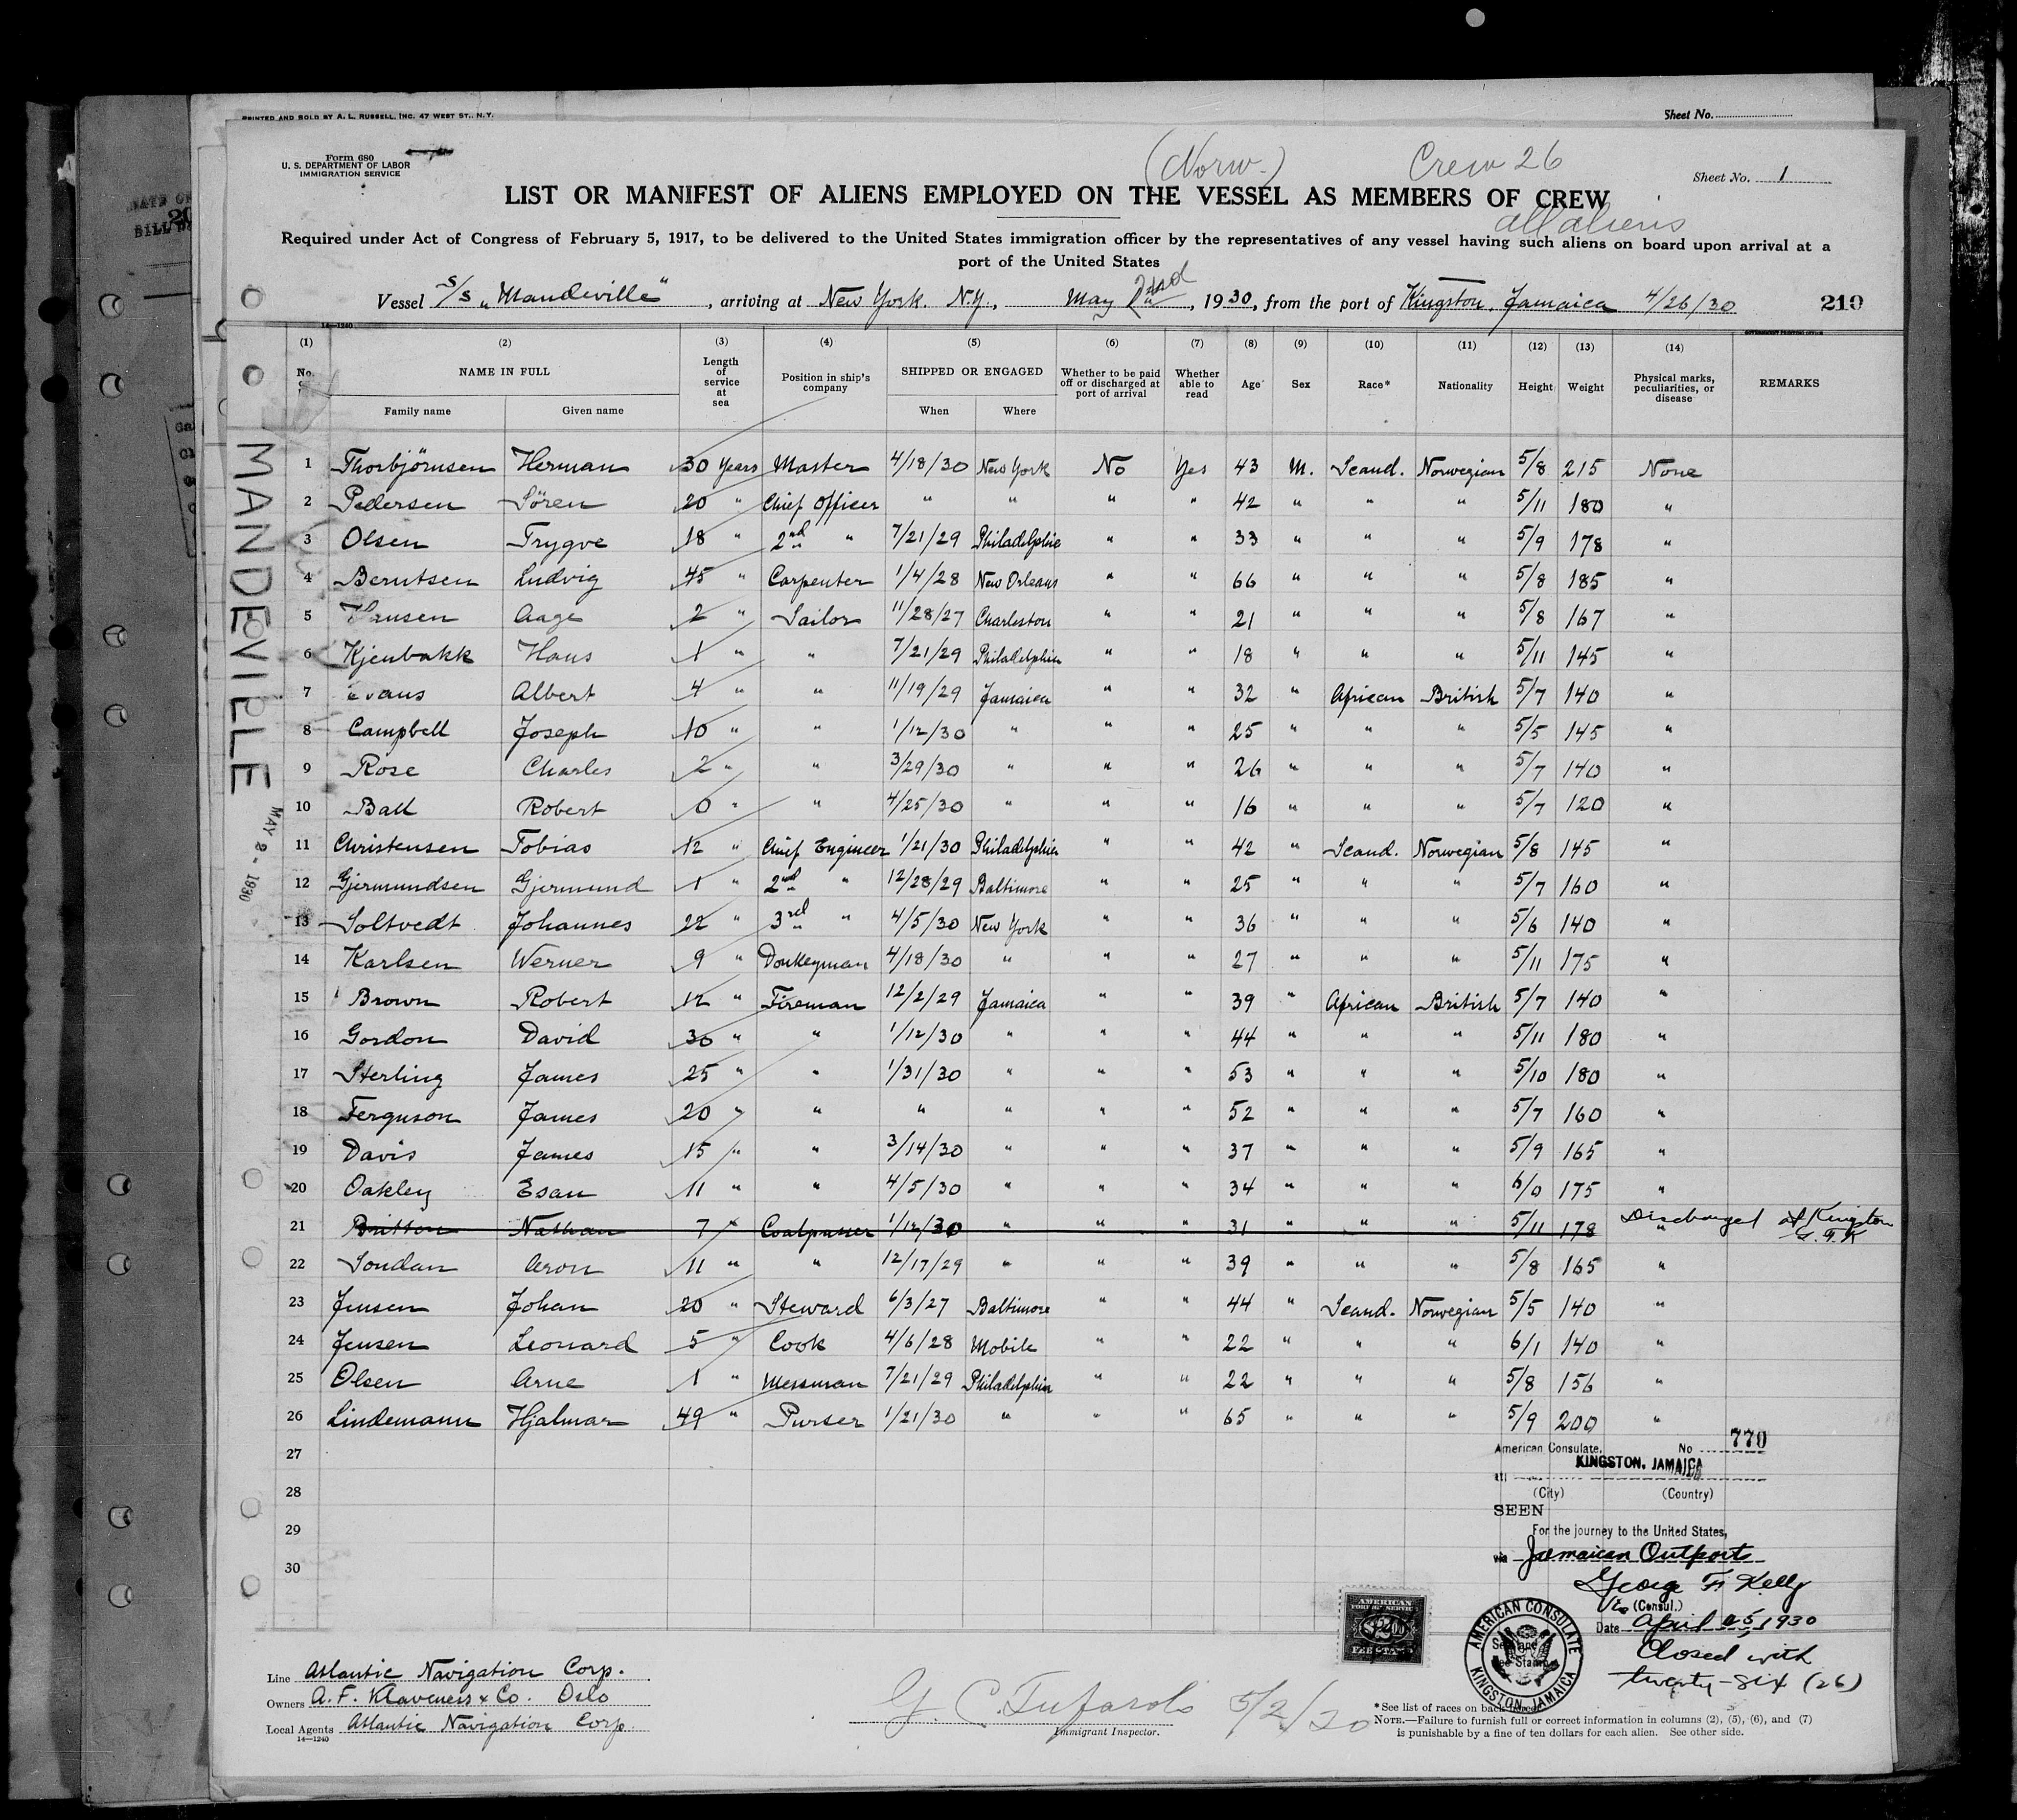 PRINTED AND SOLD BY A. L. RUSSELL, INC. 47 WEST ST., N.Y.
Sheet No.
Form 680
U. S. DEPARTMENT OF LABOR
IMMIGRATION SERVICE
(Norw.) Crew 26
Sheet No. 1
LIST OR MANIFEST OF ALIENS EMPLOYED ON THE VESSEL AS MEMBERS OF CREW
all aliens
Required under Act of Congress of February 5, 1917, to be delivered to the United States immigration officer by the representatives of any vessel having such aliens on board upon arrival at a
port of the United States
Vessel S/S "Mandeville", arriving at New York. N.Y., May 2nd, 1930, from the port of Kingston, Jamaica 4/26/30 210
14—1240
GOVERNMENT PRINTING OFFICE
(1) (2) (3) (4) (5) (6) (7) (8) (9) (10) (11) (12) (13) (14)
No. NAME IN FULL Length of service at sea Position in ship's company SHIPPED OR ENGAGED Whether to be paid off or discharged at port of arrival Whether able to read Age Sex Race* Nationality Height Weight Physical marks, peculiarities, or disease REMARKS
Family name Given name When Where
1 Thorbjörnsen Herman 30 Years Master 4/18/30 New York No Yes 43 M. Scand. Norwegian 5/8 215 None
2 Pedersen Sören 20 " Chief Officer " " " " 42 " " " 5/11 180 "
3 Olsen Trygve 18 " 2nd " 7/21/29 Philadelphia " " 33 " " " 5/9 178 "
4 Berntsen Ludvig 45 " Carpenter 1/4/28 New Orleans " " 66 " " " 5/8 185 "
5 Hansen Aage 2 " Sailor 11/28/27 Charleston " " 21 " " " 5/8 167 "
6 Kjenbakk Hans 1 " " 7/21/29 Philadelphia " " 18 " " " 5/11 145 "
7 Evans Albert 4 " " 11/19/29 Jamaica " " 32 " African British 5/7 140 "
8 Campbell Joseph 10 " " 1/12/30 " " " 25 " " " 5/5 145 "
9 Rose Charles 2 " " 3/29/30 " " " 26 " " " 5/7 140 "
10 Ball Robert 0 " " 4/25/30 " " " 16 " " " 5/7 120 "
11 Christensen Tobias 12 " Chief Engineer 1/21/30 Philadelphia " " 42 " Scand. Norwegian 5/8 145 "
12 Gjermundsen Gjermund 1 " 2nd " 12/28/29 Baltimore " " 25 " " " 5/7 160 "
13 Soltvedt Johannes 22 " 3rd " 4/5/30 New York " " 36 " " " 5/6 140 "
14 Karlsen Werner 9 " Donkeyman 4/18/30 " " " 27 " " " 5/11 175 "
15 Brown Robert 12 " Fireman 12/2/29 Jamaica " " 39 " African British 5/7 140 "
16 Gordon David 30 " " 1/12/30 " " " 44 " " " 5/11 180 "
17 Sterling James 25 " " 1/31/30 " " " 53 " " " 5/10 180 "
18 Ferguson James 20 " " " " " " 52 " " " 5/7 160 "
19 Davis James 15 " " 3/14/30 " " " 37 " " " 5/9 165 "
20 Oakley Esau 11 " " 4/5/30 " " " 34 " " " 6/0 175 "
21 Britton Nathan 7 " Coalpasser 1/12/30 " " " 31 " " " 5/11 178 " Discharged at Kingston G.F.K
22 Soudan Aron 11 " " 12/17/29 " " " 39 " " " 5/8 165 "
23 Jensen Johan 20 " Steward 6/3/27 Baltimore " " 44 " Scand. Norwegian 5/5 140 "
24 Jensen Leonard 5 " Cook 4/6/28 Mobile " " 22 " " " 6/1 140 "
25 Olsen Arne 1 " Messman 7/21/29 Philadelphia " " 22 " " " 5/8 156 "
26 Lindemann Hjalmar 49 " Purser 1/21/30 " " " 65 " " " 5/9 200 "
27
28
29
30
MANDEVILLE
MAY 2 - 1930
American Consulate, No 770
at KINGSTON, JAMAICA
(City) (Country)
SEEN
For the journey to the United States,
via Jamaican Outports
George F. Kelly
Vice (Consul.)
Date April 25, 1930
Closed with
twenty-six (26)
AMERICAN
FOREIGN SERVICE
FEE STAMP
AMERICAN CONSULATE
KINGSTON, JAMAICA
Line Atlantic Navigation Corp.
Owners A. F. Klaveness & Co. Oslo
Local Agents Atlantic Navigation Corp.
14—1240
5/2/30
Immigrant Inspector.
*See list of races on back
NOTE.—Failure to furnish full or correct information in columns (2), (5), (6), and (7)
is punishable by a fine of ten dollars for each alien. See other side.